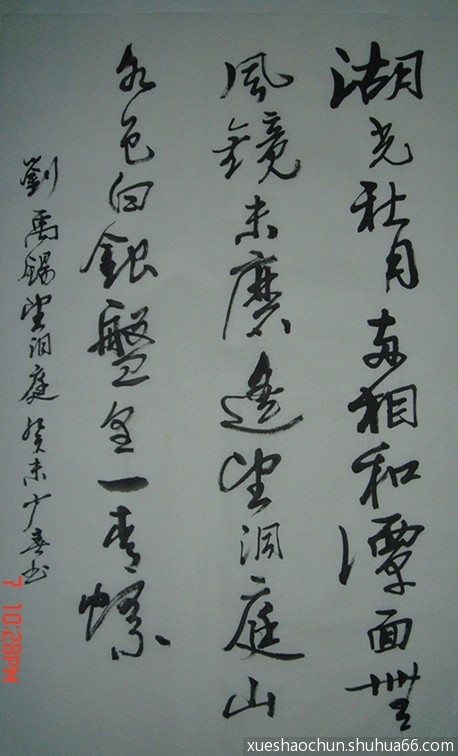 湖光秋月两相和潭面無
風鏡未磨遙望洞庭山
水色白銀盤里一青螺
劉禹錫望洞庭癸未少春书
7 10:28PM
xueshaochun.shuhua66.com